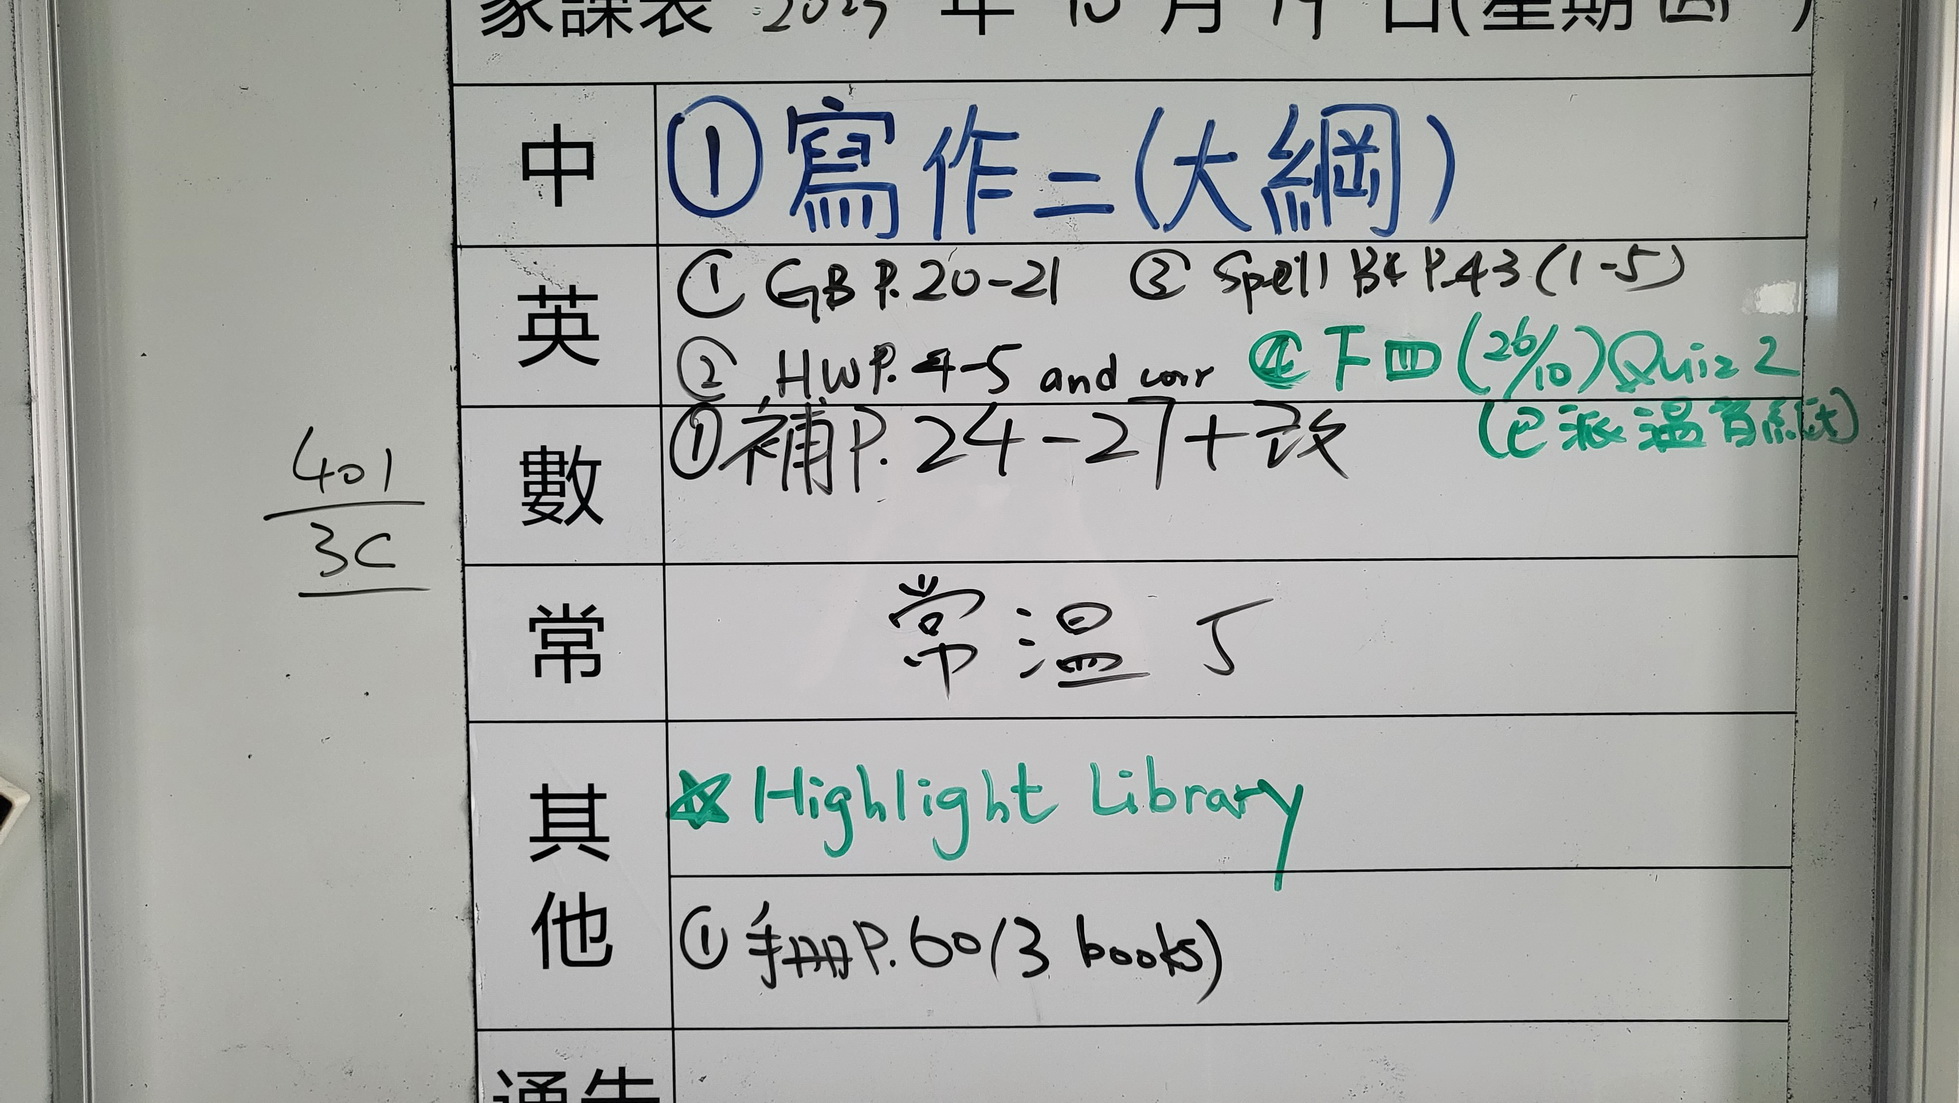 家課表 2023 年 10 月 19 日(星期 四 )
中 ①寫作二(大綱)
英 ① GB P.20-21 ③ Spell Bk P.43 (1-5)
② HW P. 4-5 and corr ④ 下四 (26/10) Quiz 2
(已派溫習紙)
數 ①補P. 24-27+改
401
3C
常 常溫 5
其他 ☆ Highlight Library
① 手冊P. 60 (3 books)
通告